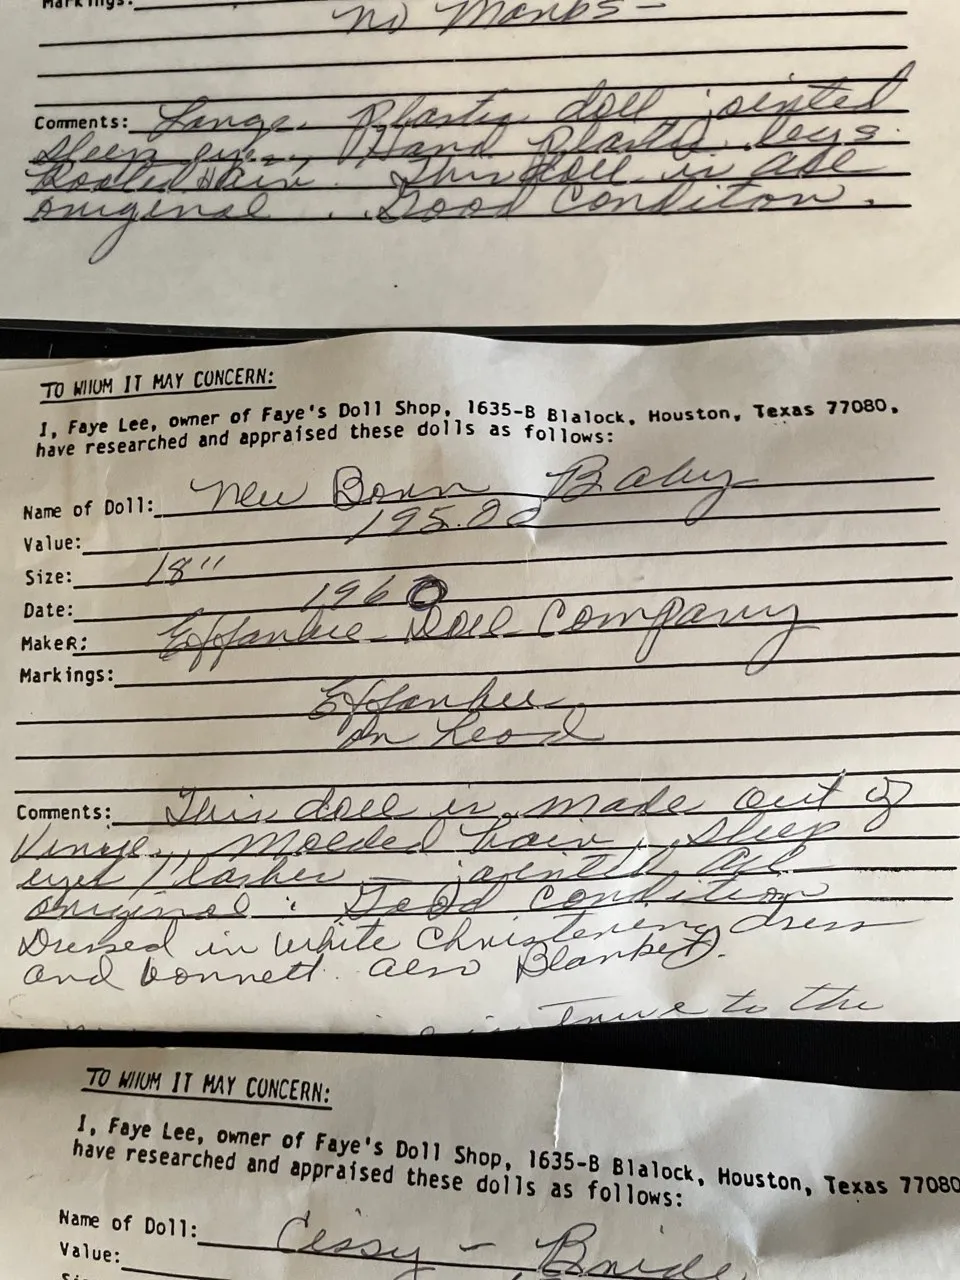 Markings:
No Marks-
Comments: Large Plastic doll jointed
sleep eyes, Hard Plastic legs.
Rooted Hair. This doll is all
original. Good Conditon.
TO WHOM IT MAY CONCERN:
I, Faye Lee, owner of Faye's Doll Shop, 1635-B Blalock, Houston, Texas 77080,
have researched and appraised these dolls as follows:
Name of Doll: New Born Baby
Value: 195.00
Size: 18"
Date: 1960
MakeR: Effanbee Doll Company
Markings:
Effanbee
on head
Comments: This doll is made out of
Vinyl, Molded hair, sleep
eyes / lashes - jointed all
original. Good Condition
Dressed in White Christening dress
and bonnett. also Blanket.
is True to the
TO WHOM IT MAY CONCERN:
I, Faye Lee, owner of Faye's Doll Shop, 1635-B Blalock, Houston, Texas 77080
have researched and appraised these dolls as follows:
Name of Doll: Cissy - Bride
Value: